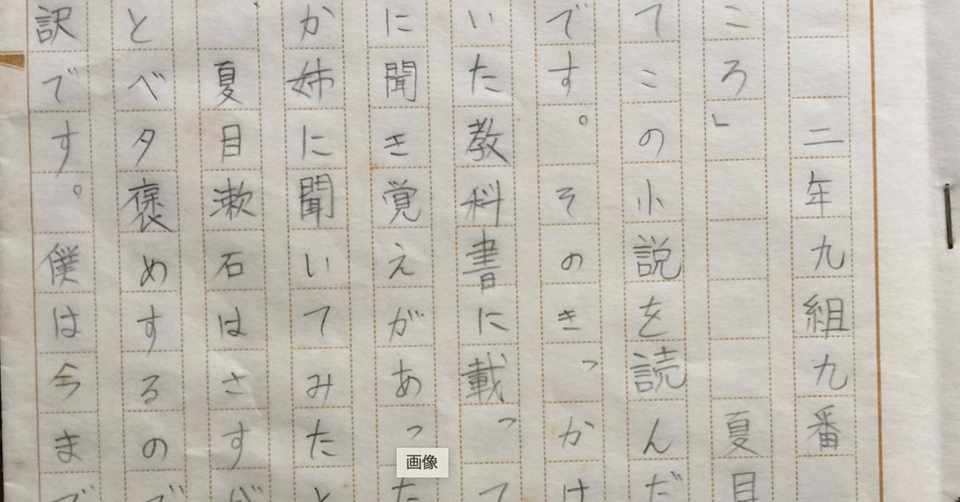 二年九組九番
ころ」夏目
てこの小説を読んだ
です。そのきっかけ
いた教科書に載って
に聞き覚えがあった
か姉に聞いてみたと
、夏目漱石はさすが
とベタ褒めするので
訳です。僕は今まで
画像